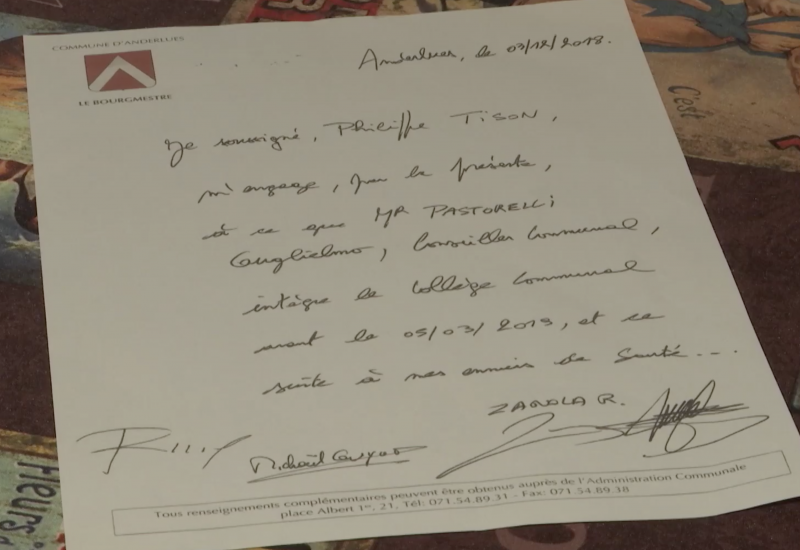 COMMUNE D'ANDERLUES
LE BOURGMESTRE
Anderlues, le 03/12/2018.
Je soussigné, Philippe TISON,
m'engage, par la présente,
à ce que MR PASTORELLI
Guglielmo, Conseiller Communal,
intègre le Collège Communal
avant le 05/03/2019, et ce
suite à mes ennuis de Santé...
ZANOLA R.
Tous renseignements complémentaires peuvent être obtenus auprès de l'Administration Communale
place Albert 1er, 21. Tél: 071.54.89.31 - Fax: 071.54.89.38
C'est
Fleurs